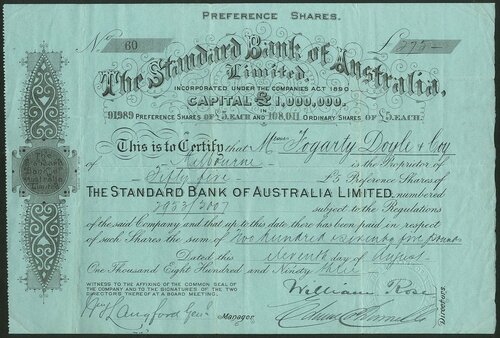 PREFERENCE SHARES.
No 60 £ 275-
The Standard Bank of Australia,
Limited.
INCORPORATED UNDER THE COMPANIES ACT 1890.
CAPITAL £1,000,000.
IN
91989 PREFERENCE SHARES OF £5,EACH AND 108,011 ORDINARY SHARES OF £5,EACH.
This is to Certify that Messrs Fogarty Doyle & Coy
of Melbourne is the Proprietor of
Fifty five £5 Preference Shares of
THE STANDARD BANK OF AUSTRALIA LIMITED numbered
2953/3007 subject to the Regulations
of the said Company and that up to this date there has been paid in respect
of such Shares the sum of Two hundred & seventy five pounds
Dated this eleventh day of August
One Thousand Eight Hundred and Ninety three
WITNESS TO THE AFFIXING OF THE COMMON SEAL OF
THE COMPANY AND TO THE SIGNATURES OF THE TWO
DIRECTORS THEREOF AT A BOARD MEETING.
William Rose
Langford Genl Manager
Directors.
The
Standard
Bank of
Australia
Limited